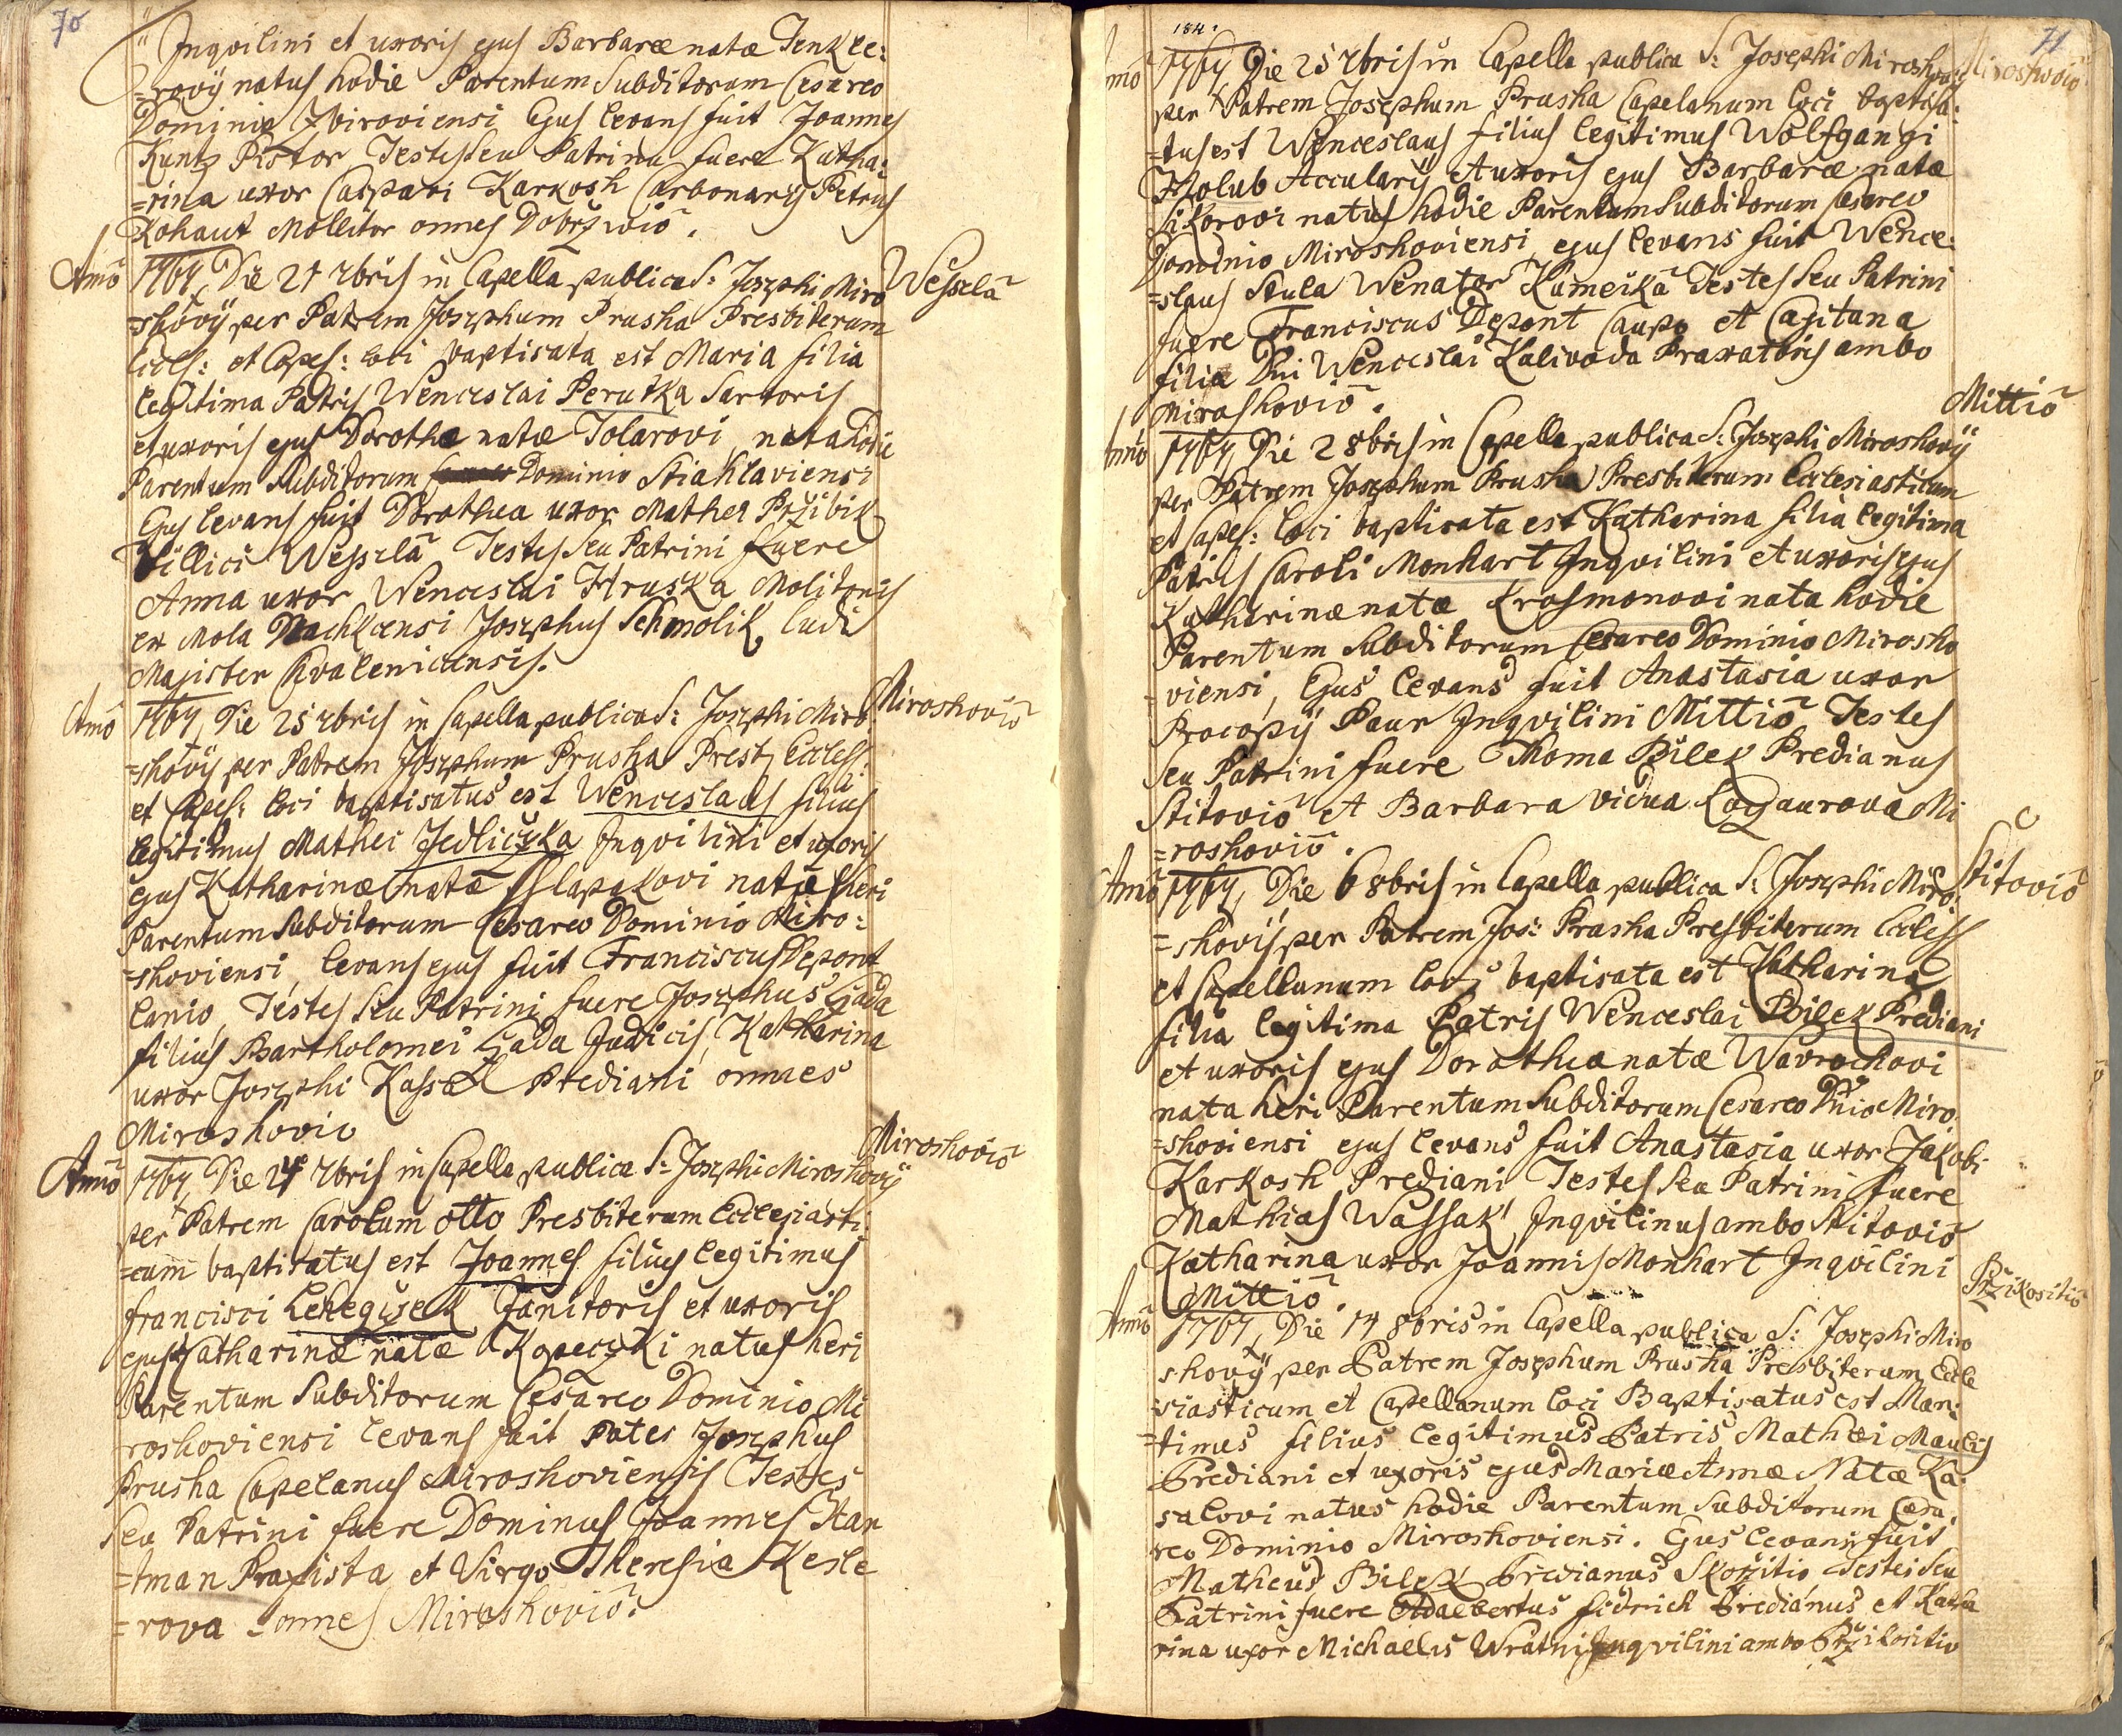 70
Inqvilini et uxoris ejus Barbaræ natæ Tenkle:
=rovÿ natus hodie Parentum Subditorum Cesareo
Dominio Zbiroviensi Ejus levans fuit Joannes
Kuntz Pistor Testes seu Patrini fuere Katha:
=rina uxor Caspari Karkosh Carbonarÿ Petrus
Kohaut Mollitor omnes Dobržiwio.
Anno 1767, Die 21 7bris in Capella publica S: Josephi Miro Wesselà
=shovÿ per Patrem Josephum Prusha Presbiterum
Eccles: et Capel: loci baptisata est Maria filia
legitima Patris Wenceslai Perutka Sartoris
et uxoris ejus Dorothæ natæ Tolarovi nata hodie
Parentum Subditorum Dominio Stiahlaviensi
Ejus levans fuit Dorothea uxor Mathei Pržibik
Villici Wesselà Testes seu Patrini fuere
Anna uxor Wenceslai Hruska Molitoris
ex Mola Josephus Schmolik ludi
Magister Chvalenicensis.
Anno 1767, Die 25 7bris in Capella publica S: Josephi Miro: Miroshovio
=shovÿ per Patrem Josephum Prusha Presb: Eccless:
et Capel: loci baptisatus est Wenceslaus filius
legitimus Mathei Jedliczka Inqvilini et uxoris
ejus Katharinæ natæ Shlapakovi natus heri
Parentum Subditorum Cesareo Dominio Miro:
=shoviensi, levans ejus fuit Franciscus Depont
lanio, Testes seu Patrini fuere Josephus Gada
filius Bartholomei Gada Judicis, Katharina
uxor Josephi Kassal Prediani omnes
Miroshovio
Anno 1767, Die 27 7bris in Capella publica S: Josephi Miroshovÿ Miroshovio
per Patrem Carolum Otto Presbiterum Ecclesiasti:
=cum baptisatus est Joannes filius legitimus
Francisci Lehegisek Janitoris et uxoris
ejus Katharinæ natæ Kopeczki natus heri
Parentum Subditorum Cesareo Dominio Mi
roshoviensi levans fuit Pater Josephus
Prusha Capelanus Miroshoviensis Testes
seu Patrini fuere Dominus Joannes Har
=tman Praxista et Virgo Theresia Kesle
=rova omnes Miroshovio.
184.
71
Anno 1767 Die 25 7bris in Capella publica S: Josephi Miroshovÿ Miroshovio
per Patrem Josephum Prusha Capelanum loci baptisa:
=tus est Wenceslaus filius legitimus Wolfgangi
Holub Accularÿ et uxoris ejus Barbaræ natæ
Sikorovi natus hodie Parentum Subditorum Cesareo
Dominio Miroshoviensi, ejus levans fuit Wence:
=slaus Skula Wenator Kameikà Testes seu Patrini
fuere Franciscus Depont Caupo et Capitana
filia Dni Wenceslai Kalivoda Praxatoris ambo
Miroshovio.
Anno 1767, Die 2 8bris in Capella publica S: Josephi Miroshovÿ Mittio
per Patrem Josephum Prusha Presbiterum Ecclesiasticum
et Capel: loci baptisata est Katharina filia legitima
Patris Caroli Monhart Inqvilini et uxoris ejus
Katharinæ natæ Krosmonovi nata hodie
Parentum Subditorum Cesareo Dominio Mirosho
=viensi, Ejus levans fuit Anastasia uxor
Procopÿ Paur Inqvilini Mittio Testes
seu Patrini fuere Thoma Bilek Predianus
Stitovio et Barbara vidua Logaurova Mi
=roshovio.
Anno 1767, Die 6 8bris in Capella publica S: Josephi Miro: Stitovio
=shovÿ per Patrem Jos: Prusha Presbiterum Eccless
et Capellanum loci baptisata est Katharina
filia legitima Patris Wenceslai Bilek Prediani
et uxoris ejus Dorotheæ natæ Wavrochovi
nata heri Parentum Subditorum Cesareo Dnio Miro
=shoviensi ejus levans fuit Anastasia uxor Jakobi
Karkosh Prediani Testes seu Patrini fuere
Mathias Wassak Inqvilinus ambo Stitovio
Katharina uxor Joannis Monhart Inqvilini
Mittio.
Anno 1767, Die 14 8bris in Capella publica S: Josephi Miro Pržikositio
shovÿ per Patrem Josephum Prusha Presbiterum Eccle
=siasticum et Capellanum loci Baptisatus est Mar:
=tinus filius legitimus Patris Mathæi Maulis
Prediani et uxoris ejus Mariæ Annæ Natæ Ka:
salovi natus hodie Parentum Subditorum Cæsa:
reo Dominio Miroshoviensi. Ejus levans fuit
Matheus Bilek Predianus Skoržitio Testes seu
Patrini fuere Adalbertus Fidrich Predianus et Katha
rina uxor Michaelis Wratni Inqvilini ambo Pržikositio